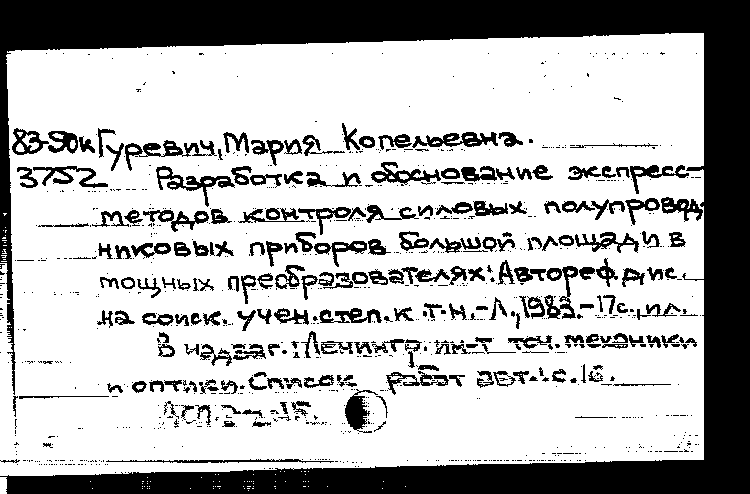 83-50к Гуревич, Мария Копельевна.
3752 Разработка и обоснование экспресс-
методов контроля силовых полупровод-
никовых приборов большой площади в
мощных преобразователях: Автореф. дис.
на соиск. учен. степ. к.т.н. -Л., 1983. -17с., ил.
В надзаг.: Ленингр. ин-т точ. механики
и оптики. Список работ авт.: с. 16.